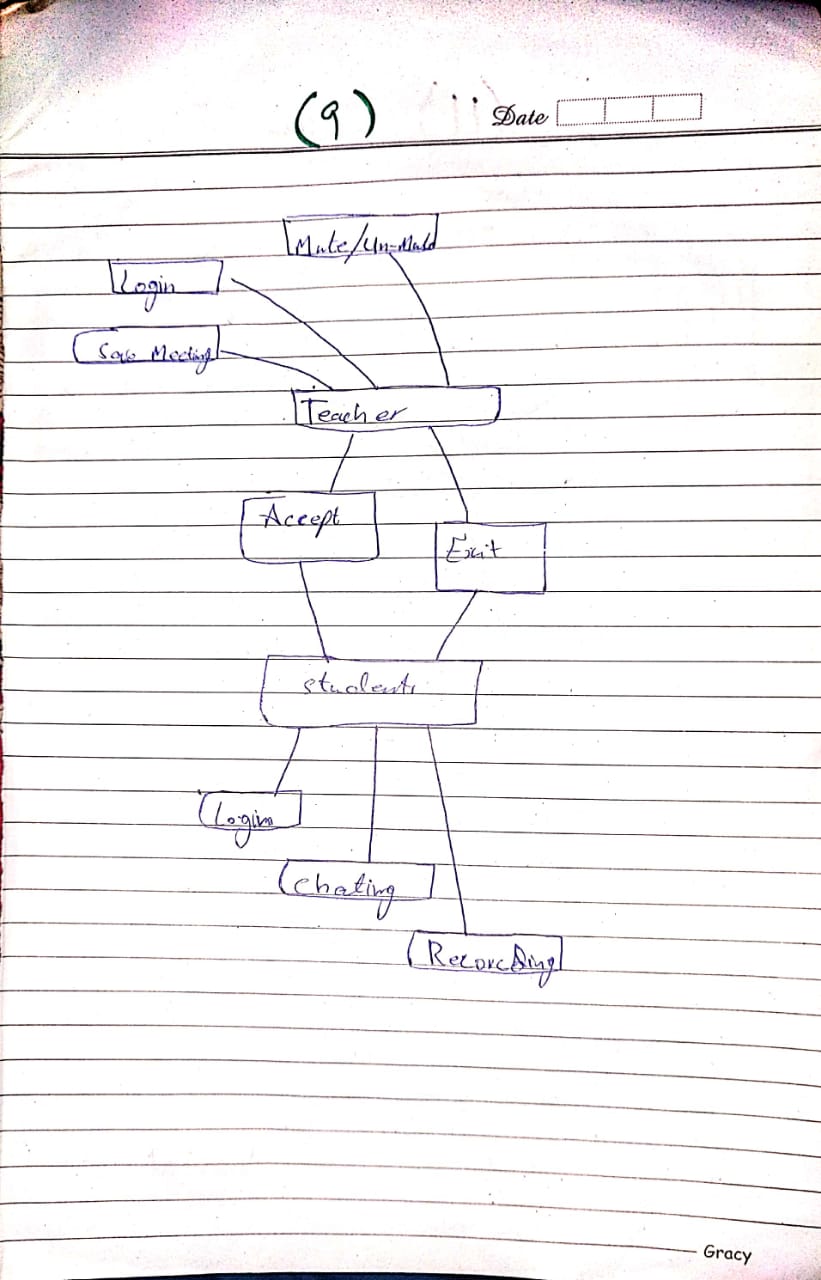 (9)
Date
Mute/Un-Mute
Login
Save Meeting
Teacher
Accept
Exit
Students
Login
Chating
Recording
Gracy